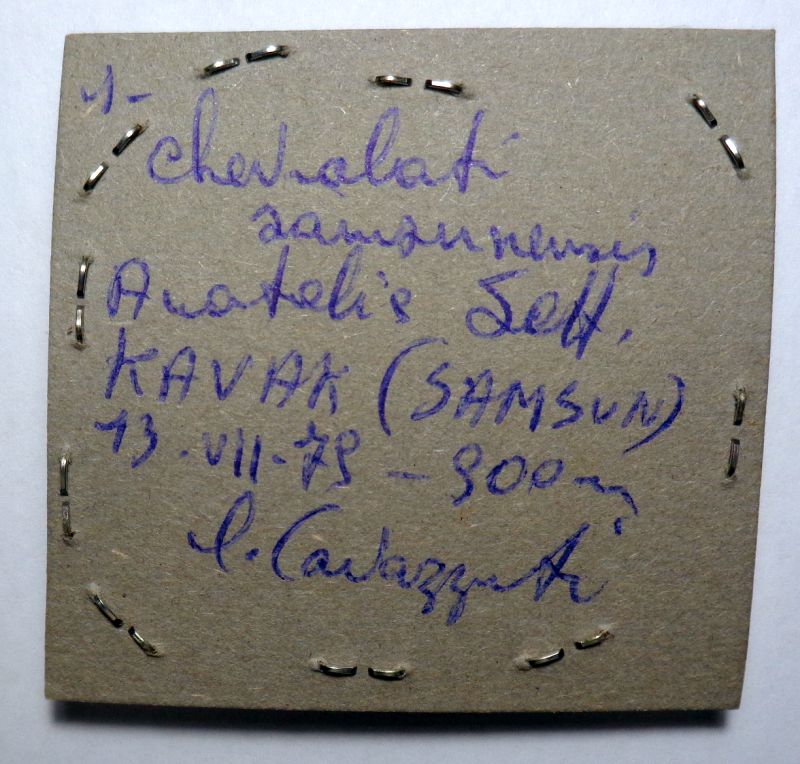 1-
chevrolati
samsunensis
Anatolia Sett.
KAVAK (SAMSUN)
13.VII-79 - 900 m
P. Cavazzuti